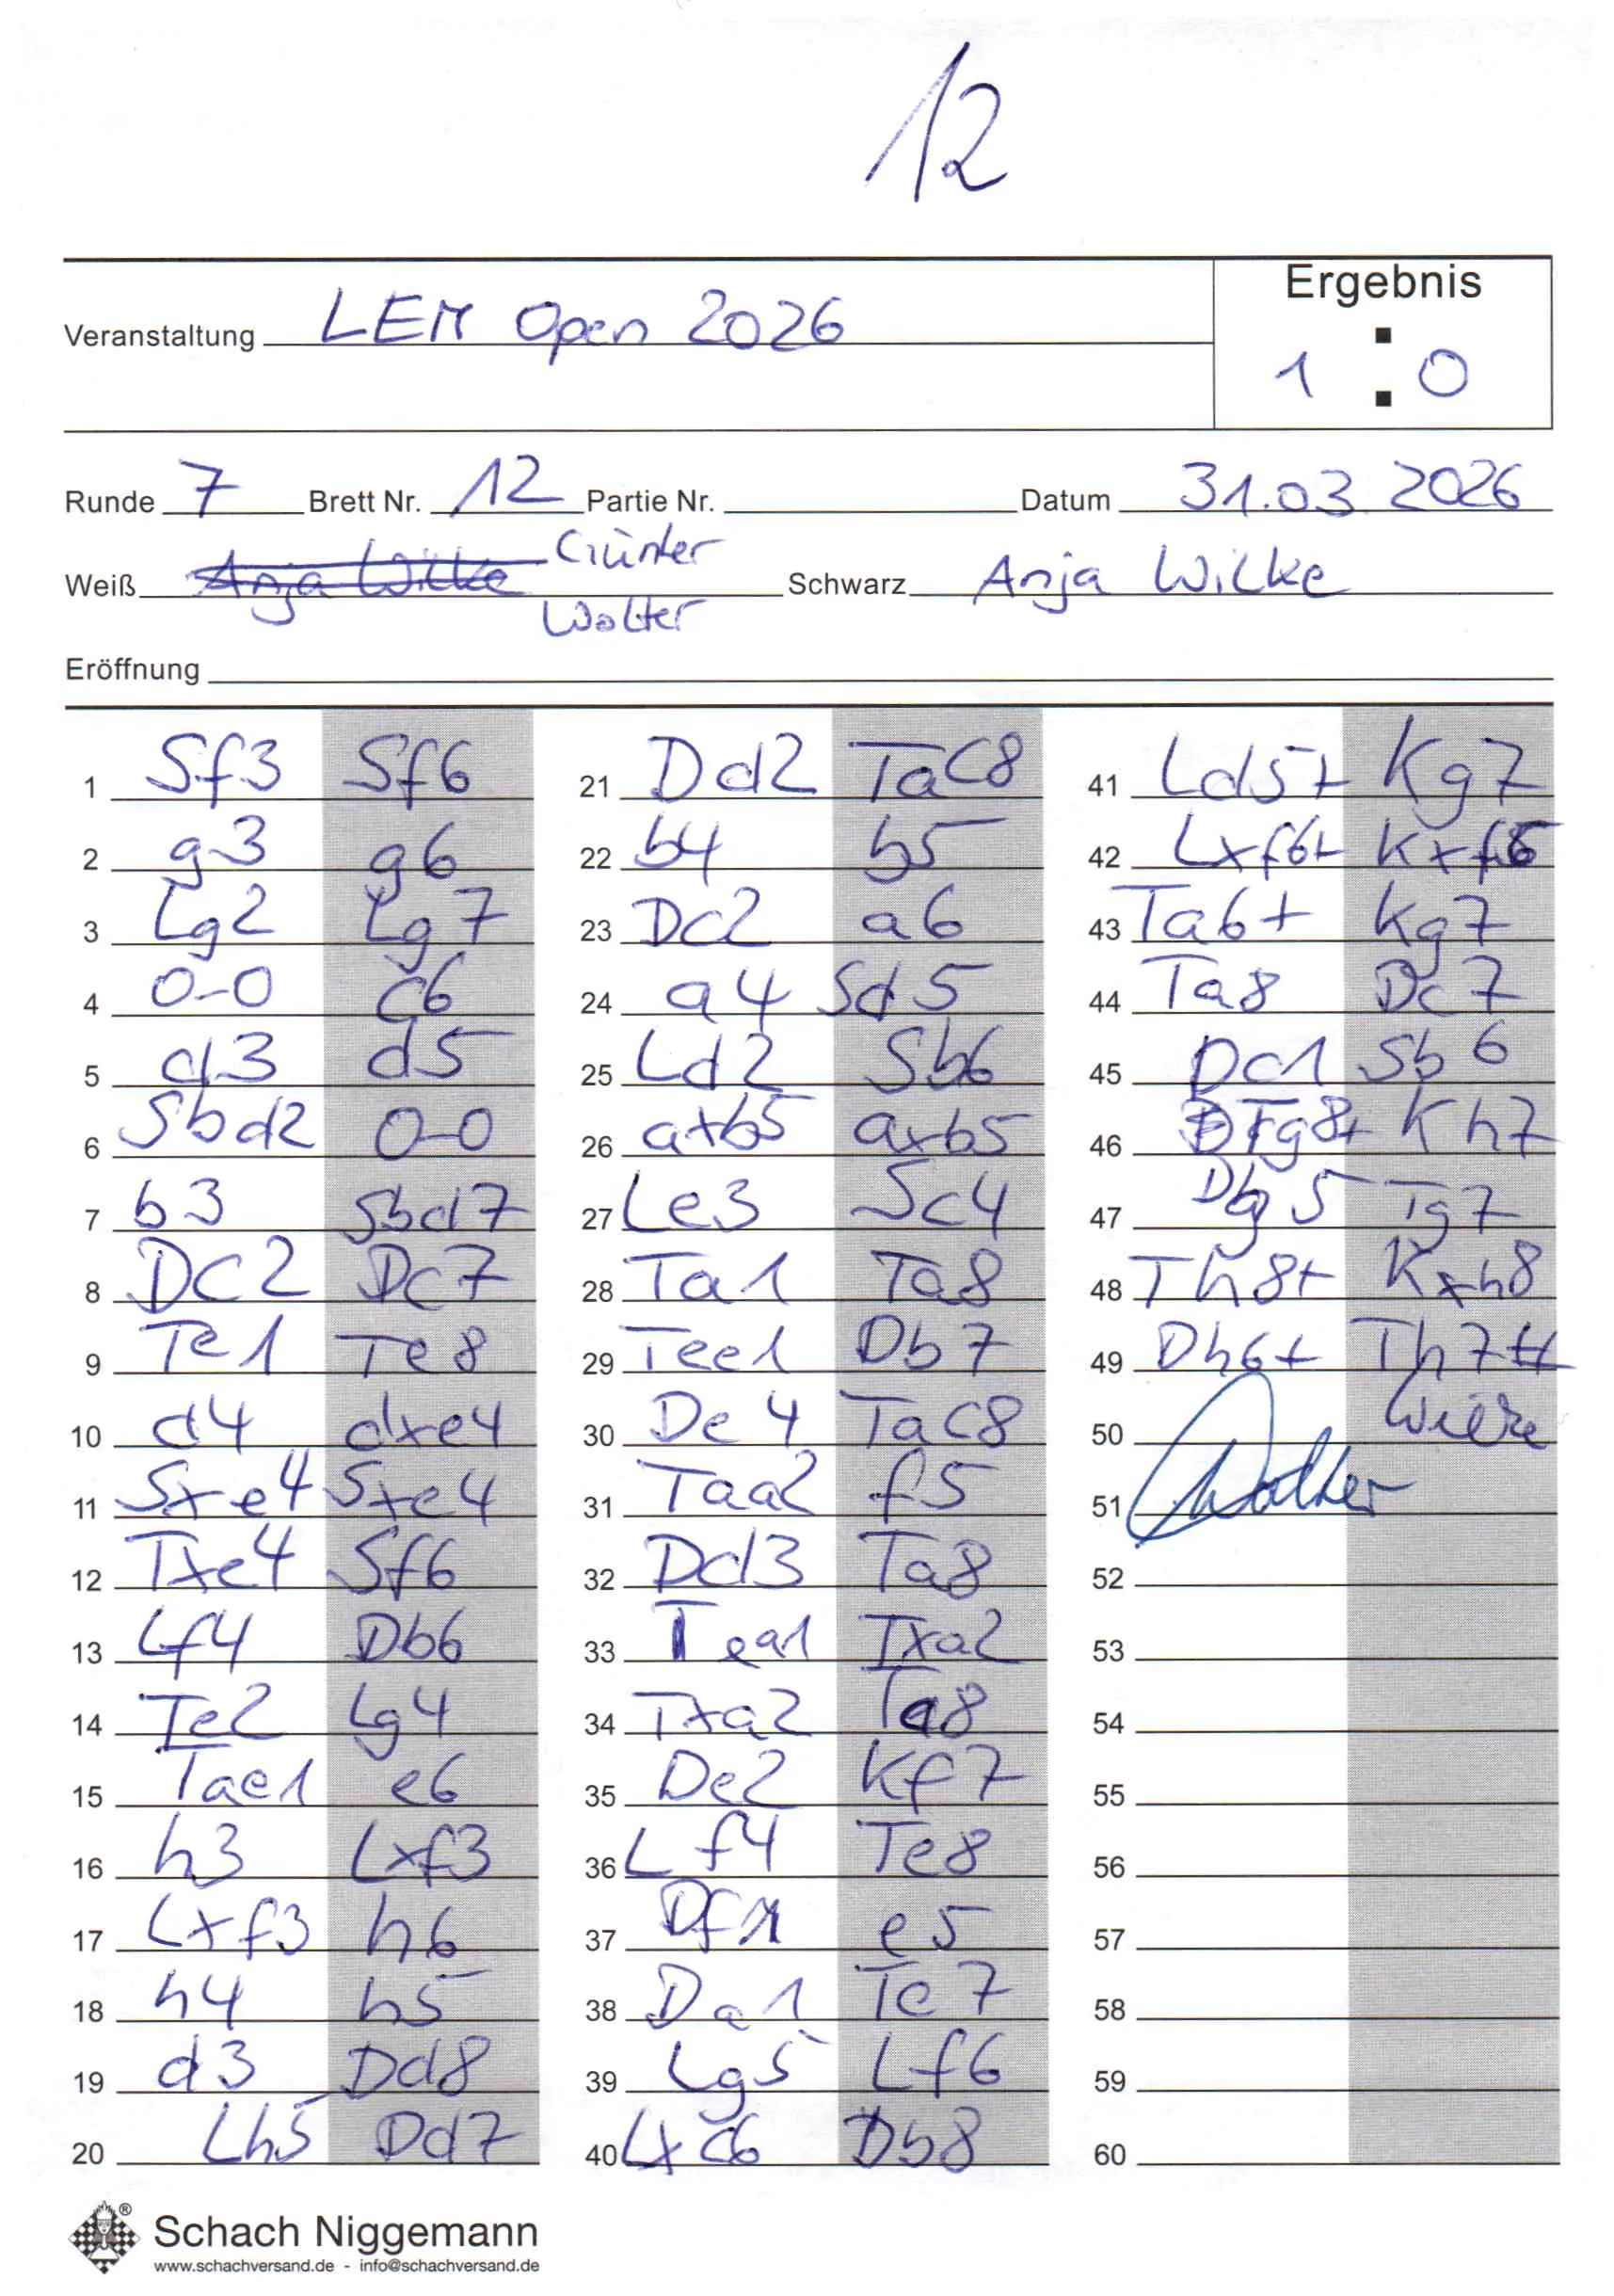 12
Ergebnis
Veranstaltung LEM Open 2026
1 : 0
Runde 7 Brett Nr. 12 Partie Nr. Datum 31.03.2026
Weiß Anja Wilke Günter Wolter Schwarz Anja Wilke
Eröffnung
1 Sf3 Sf6
2 g3 g6
3 Lg2 Lg7
4 0-0 c6
5 d3 d5
6 Sbd2 0-0
7 b3 Sbd7
8 Dc2 Dc7
9 Te1 Te8
10 d4 dxe4
11 Sxe4 Sxe4
12 Txe4 Sf6
13 Lf4 Db6
14 Te2 Lg4
15 Tae1 e6
16 h3 Lxf3
17 Lxf3 h6
18 h4 h5
19 d3 Dd8
20 Lh5 Dd7
21 Dd2 Tac8
22 b4 b5
23 Dc2 a6
24 a4 Sd5
25 Ld2 Sb6
26 axb5 axb5
27 Le3 Sc4
28 Ta1 Ta8
29 Tee1 Db7
30 De4 Tac8
31 Taa2 f5
32 Dd3 Ta8
33 Tea1 Txa2
34 Txa2 Ta8
35 De2 Kf7
36 Lf4 Te8
37 Df1 e5
38 Da1 Te7
39 Lg5 Lf6
40 Lxc6 Db8
41 Ld5+ Kg7
42 Lxf6+ Kxf6
43 Ta6+ Kg7
44 Ta8 Dc7
45 Dc1 Sb6
46 Tg8+ Kh7
47 Dg5 Tg7
48 Th8+ Kxh8
49 Dh6+ Th7#
50 Wilke
51 Wolter
52
53
54
55
56
57
58
59
60
Schach Niggemann
www.schachversand.de - info@schachversand.de